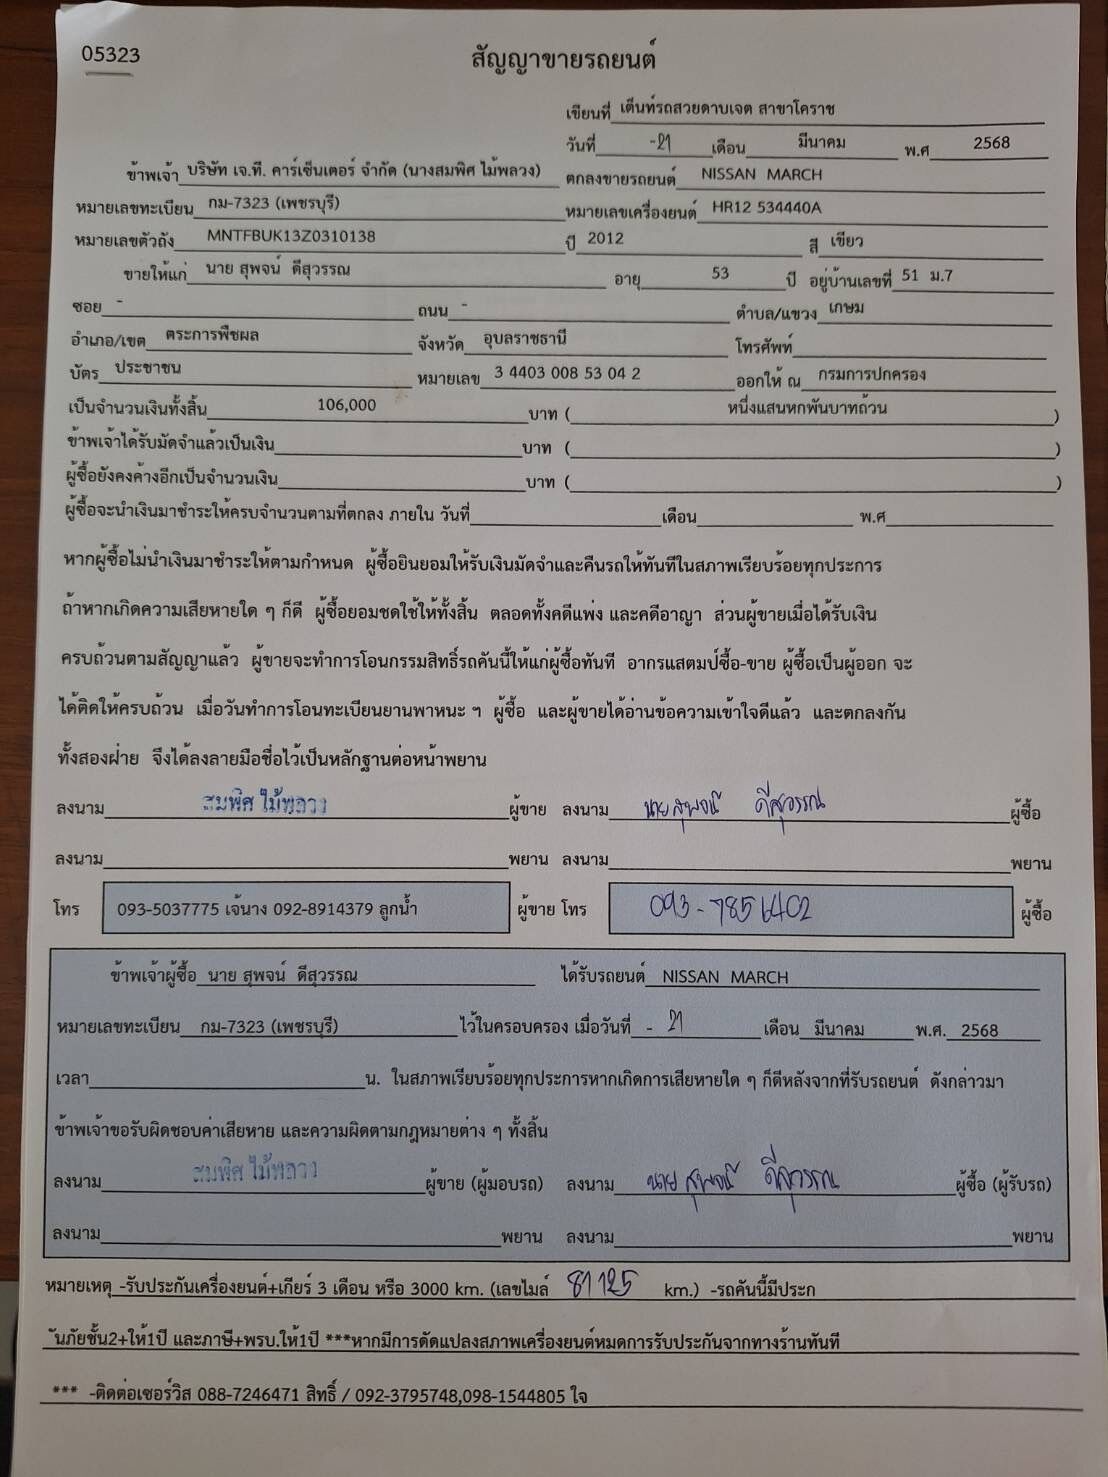 05323
สัญญาขายรถยนต์
เขียนที่ เต็นท์รถสวยดาบเจต สาขาโคราช
วันที่ -21 เดือน มีนาคม พ.ศ 2568
ข้าพเจ้า บริษัท เจ.ที. คาร์เซ็นเตอร์ จำกัด (นางสมพิศ ไม้พลวง) ตกลงขายรถยนต์ NISSAN MARCH
หมายเลขทะเบียน กม-7323 (เพชรบุรี) หมายเลขเครื่องยนต์ HR12 534440A
หมายเลขตัวถัง MNTFBUK13Z0310138 ปี 2012 สี เขียว
ขายให้แก่ นาย สุพจน์ ดีสุวรรณ อายุ 53 ปี อยู่บ้านเลขที่ 51 ม.7
ซอย - ถนน - ตำบล/แขวง เกษม
อำเภอ/เขต ตระการพืชผล จังหวัด อุบลราชธานี โทรศัพท์
บัตร ประชาชน หมายเลข 3 4403 008 53 04 2 ออกให้ ณ กรมการปกครอง
เป็นจำนวนเงินทั้งสิ้น 106,000 บาท ( หนึ่งแสนหกพันบาทถ้วน )
ข้าพเจ้าได้รับมัดจำแล้วเป็นเงิน บาท ( )
ผู้ซื้อยังคงค้างอีกเป็นจำนวนเงิน บาท ( )
ผู้ซื้อจะนำเงินมาชำระให้ครบจำนวนตามที่ตกลง ภายใน วันที่ เดือน พ.ศ
หากผู้ซื้อไม่นำเงินมาชำระให้ตามกำหนด ผู้ซื้อยินยอมให้รับเงินมัดจำและคืนรถให้ทันทีในสภาพเรียบร้อยทุกประการ
ถ้าหากเกิดความเสียหายใด ๆ ก็ดี ผู้ซื้อยอมชดใช้ให้ทั้งสิ้น ตลอดทั้งคดีแพ่ง และคดีอาญา ส่วนผู้ขายเมื่อได้รับเงิน
ครบถ้วนตามสัญญาแล้ว ผู้ขายจะทำการโอนกรรมสิทธิ์รถคันนี้ให้แก่ผู้ซื้อทันที อากรแสตมป์ซื้อ-ขาย ผู้ซื้อเป็นผู้ออก จะ
ได้ติดให้ครบถ้วน เมื่อวันทำการโอนทะเบียนยานพาหนะ ฯ ผู้ซื้อ และผู้ขายได้อ่านข้อความเข้าใจดีแล้ว และตกลงกัน
ทั้งสองฝ่าย จึงได้ลงลายมือชื่อไว้เป็นหลักฐานต่อหน้าพยาน
ลงนาม สมพิศ ไม้พลวง ผู้ขาย ลงนาม นายสุพจน์ ดีสุวรรณ ผู้ซื้อ
ลงนาม พยาน ลงนาม พยาน
โทร 093-5037775 เจ้นาง 092-8914379 ลูกน้ำ ผู้ขาย โทร 093-7851402 ผู้ซื้อ
ข้าพเจ้าผู้ซื้อ นาย สุพจน์ ดีสุวรรณ ได้รับรถยนต์ NISSAN MARCH
หมายเลขทะเบียน กม-7323 (เพชรบุรี) ไว้ในครอบครอง เมื่อวันที่ - 21 เดือน มีนาคม พ.ศ. 2568
เวลา น. ในสภาพเรียบร้อยทุกประการหากเกิดการเสียหายใด ๆ ก็ดีหลังจากที่รับรถยนต์ ดังกล่าวมา
ข้าพเจ้าขอรับผิดชอบค่าเสียหาย และความผิดตามกฎหมายต่าง ๆ ทั้งสิ้น
ลงนาม สมพิศ ไม้พลวง ผู้ขาย (ผู้มอบรถ) ลงนาม นาย สุพจน์ ดีสุวรรณ ผู้ซื้อ (ผู้รับรถ)
ลงนาม พยาน ลงนาม พยาน
หมายเหตุ -รับประกันเครื่องยนต์+เกียร์ 3 เดือน หรือ 3000 km. (เลขไมล์ 81125 km.) -รถคันนี้มีประก
ันภัยชั้น2+ให้1ปี และภาษี+พรบ.ให้1ปี ***หากมีการดัดแปลงสภาพเครื่องยนต์หมดการรับประกันจากทางร้านทันที
*** -ติดต่อเซอร์วิส 088-7246471 สิทธิ์ / 092-3795748,098-1544805 ใจ